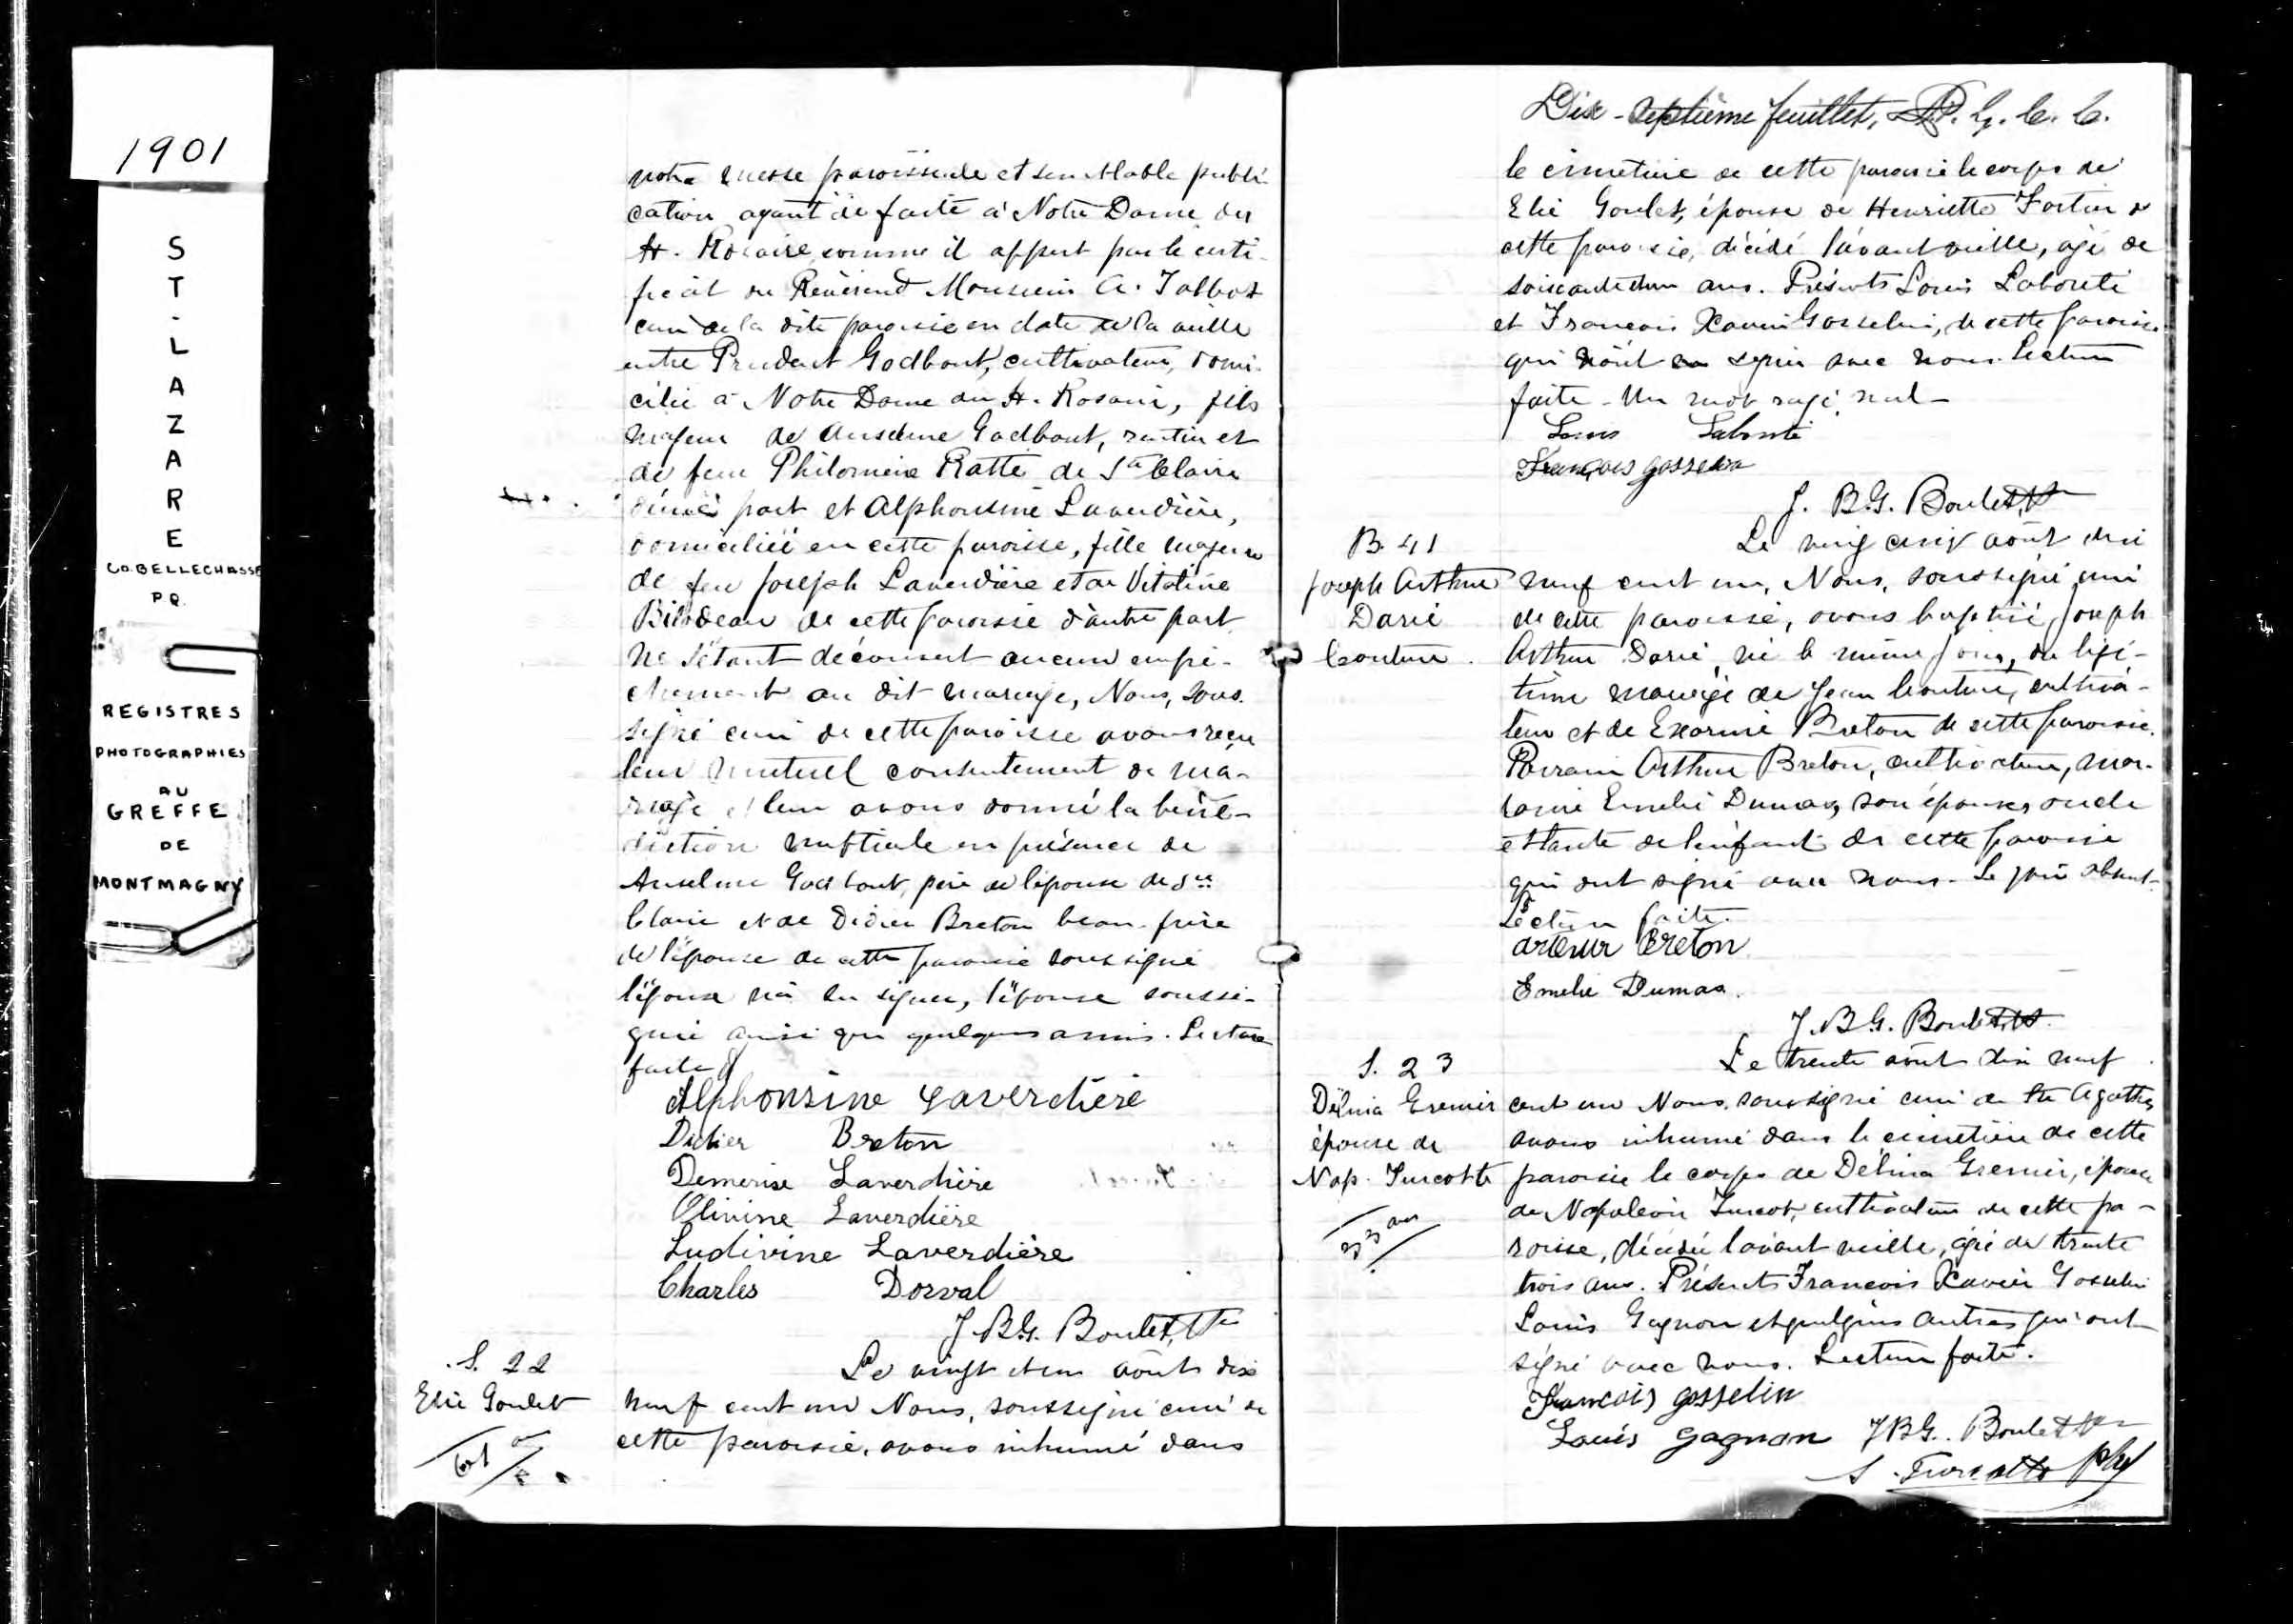 1901
S
T
.
L
A
Z
A
R
E
CO. BELLECHASSE
P.Q.
REGISTRES
PHOTOGRAPHIES
AU
GREFFE
DE
MONTMAGNY
notre messe paroissiale et semblable publi-
cation ayant été faite à Notre Dame du
St. Rosaire comme il appert par le certi-
ficat du Révérend Monsieur A. Talbot
curé de la dite paroisse en date de la veille
entre Prudent Godbout, cultivateur, domi-
cilié à Notre Dame du St. Rosaire, fils
majeur de Anselme Godbout, rentier et
de feue Philomène Ratté de Ste Claire
d'une part et Alphonsine Laverdière,
domiciliée en cette paroisse, fille majeure
de feu Joseph Laverdière et de Vitaline
Bilodeau de cette paroisse d'autre part
Ne s'étant découvert aucun empê-
chement au dit mariage, Nous, sous-
signé curé de cette paroisse avons reçu
leur mutuel consentement de ma-
riage et leur avons donné la béné-
diction nuptiale en présence de
Anselme Godbout, père de l'époux de Ste
Claire et de Didier Breton beau-frère
de l'épouse de cette paroisse soussigné
l'époux n'a su signer, l'épouse soussi-
gnée ainsi que quelques amis. Lecture
faite
Alphonsine Laverdière
Didier Breton
Demerise Laverdière
Olivine Laverdière
Ludivine Laverdière
Charles Dorval
J. B. G. Boulet, Ptre
S. 22
Le vingt et un août dix
Elie Goulet
neuf cent un Nous, soussigné curé de
cette paroisse, avons inhumé dans
61
Dix-septième feuillet, P. G. C. C.
le cimetière de cette paroisse le corps de
Elie Goulet, époux de Henriette Fortier de
cette paroisse, décédé l'avant veille, agé de
soixante et un ans. Présents Louis Labonté
et Francois Xavier Gosselin, de cette paroisse
qui ont signé avec nous. Lecture
faite - Un mot rayé nul -
Louis Labonté
François gosselin
J. B. G. Boulet, Ptre
B. 41
Le vingt cinq août dix
Joseph Arthur
neuf cent un, Nous, soussigné curé
Darié
de cette paroisse, avons baptisé Joseph
Couture.
Arthur Darié, né le même jour, du légi-
time mariage de Jean Couture, cultiva-
teur et de Exorine Breton de cette paroisse.
Parrain Arthur Breton, cultivateur, mar-
raine Emelie Dumas, son épouse, oncle
et tante de l'enfant de cette paroisse
qui ont signé avec nous - Le père absent -
Lecture faite.
Arthur Breton
Emelie Dumas.
J. B. G. Boulet, Ptre.
S. 23
Le trente août dix neuf
Délina Grenier
cent un Nous, soussigné curé de Ste Agathe
épouse de
avons inhumé dans le cimetière de cette
Nap. Turcotte
paroisse le corps de Délina Grenier, épouse
33 ans
de Napoléon Turcot, cultivateur de cette pa-
roisse, décédée l'avant veille, agée de trente
trois ans. Présents Francois Xavier Gosselin
Louis Gagnon et quelques autres qui ont
signé avec nous. Lecture faite.
François gosselin
Louis Gagnon J. B. G. Boulet Ptre